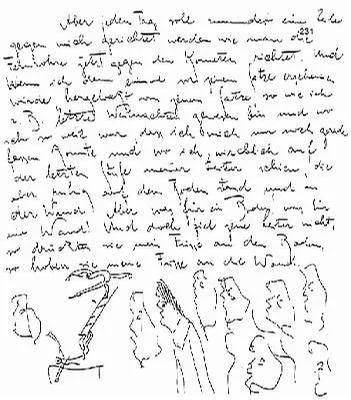 Aber jeden Tag soll zumindest eine Zeile
gegen mich gerichtet werden wie man die 231
Fernrohre jetzt gegen den Kometen richtet. Und
wenn ich dann einmal vor jenem Satze erscheinen
würde hergelockt von jenem Satze, so wie ich
z. B. letzte Weihnachten gewesen bin und wo
ich so weit war dass ich mich nur noch gerade
fassen konnte und wo ich wirklich auf
der letzten Stufe meiner Leiter schien, die
aber ruhig auf dem Boden stand und an
der Wand. Aber was für ein Boden, was für
eine Wand! Und doch fiel jene Leiter nicht,
so drückten sie meine Füsse an den Boden,
so hoben sie meine Füsse an die Wand.